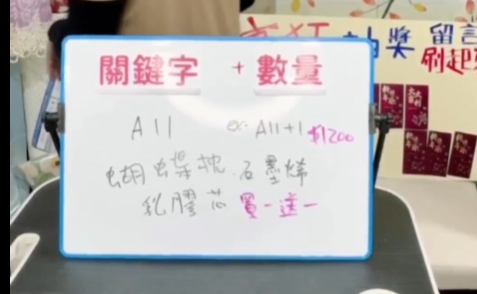 抽獎 留言
刷起來
關鍵字 + 數量
All ex. All+1 $1200
蝴蝶枕.石墨烯
乳膠芯 買一送一